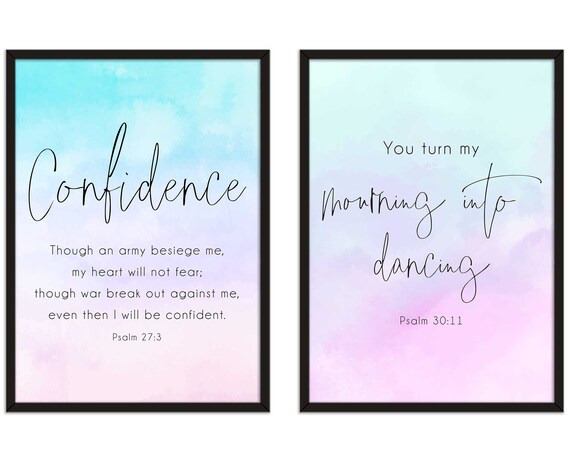 Confidence
Though an army besiege me,
my heart will not fear;
though war break out against me,
even then I will be confident.
Psalm 27:3
You turn my
mourning into
dancing
Psalm 30:11